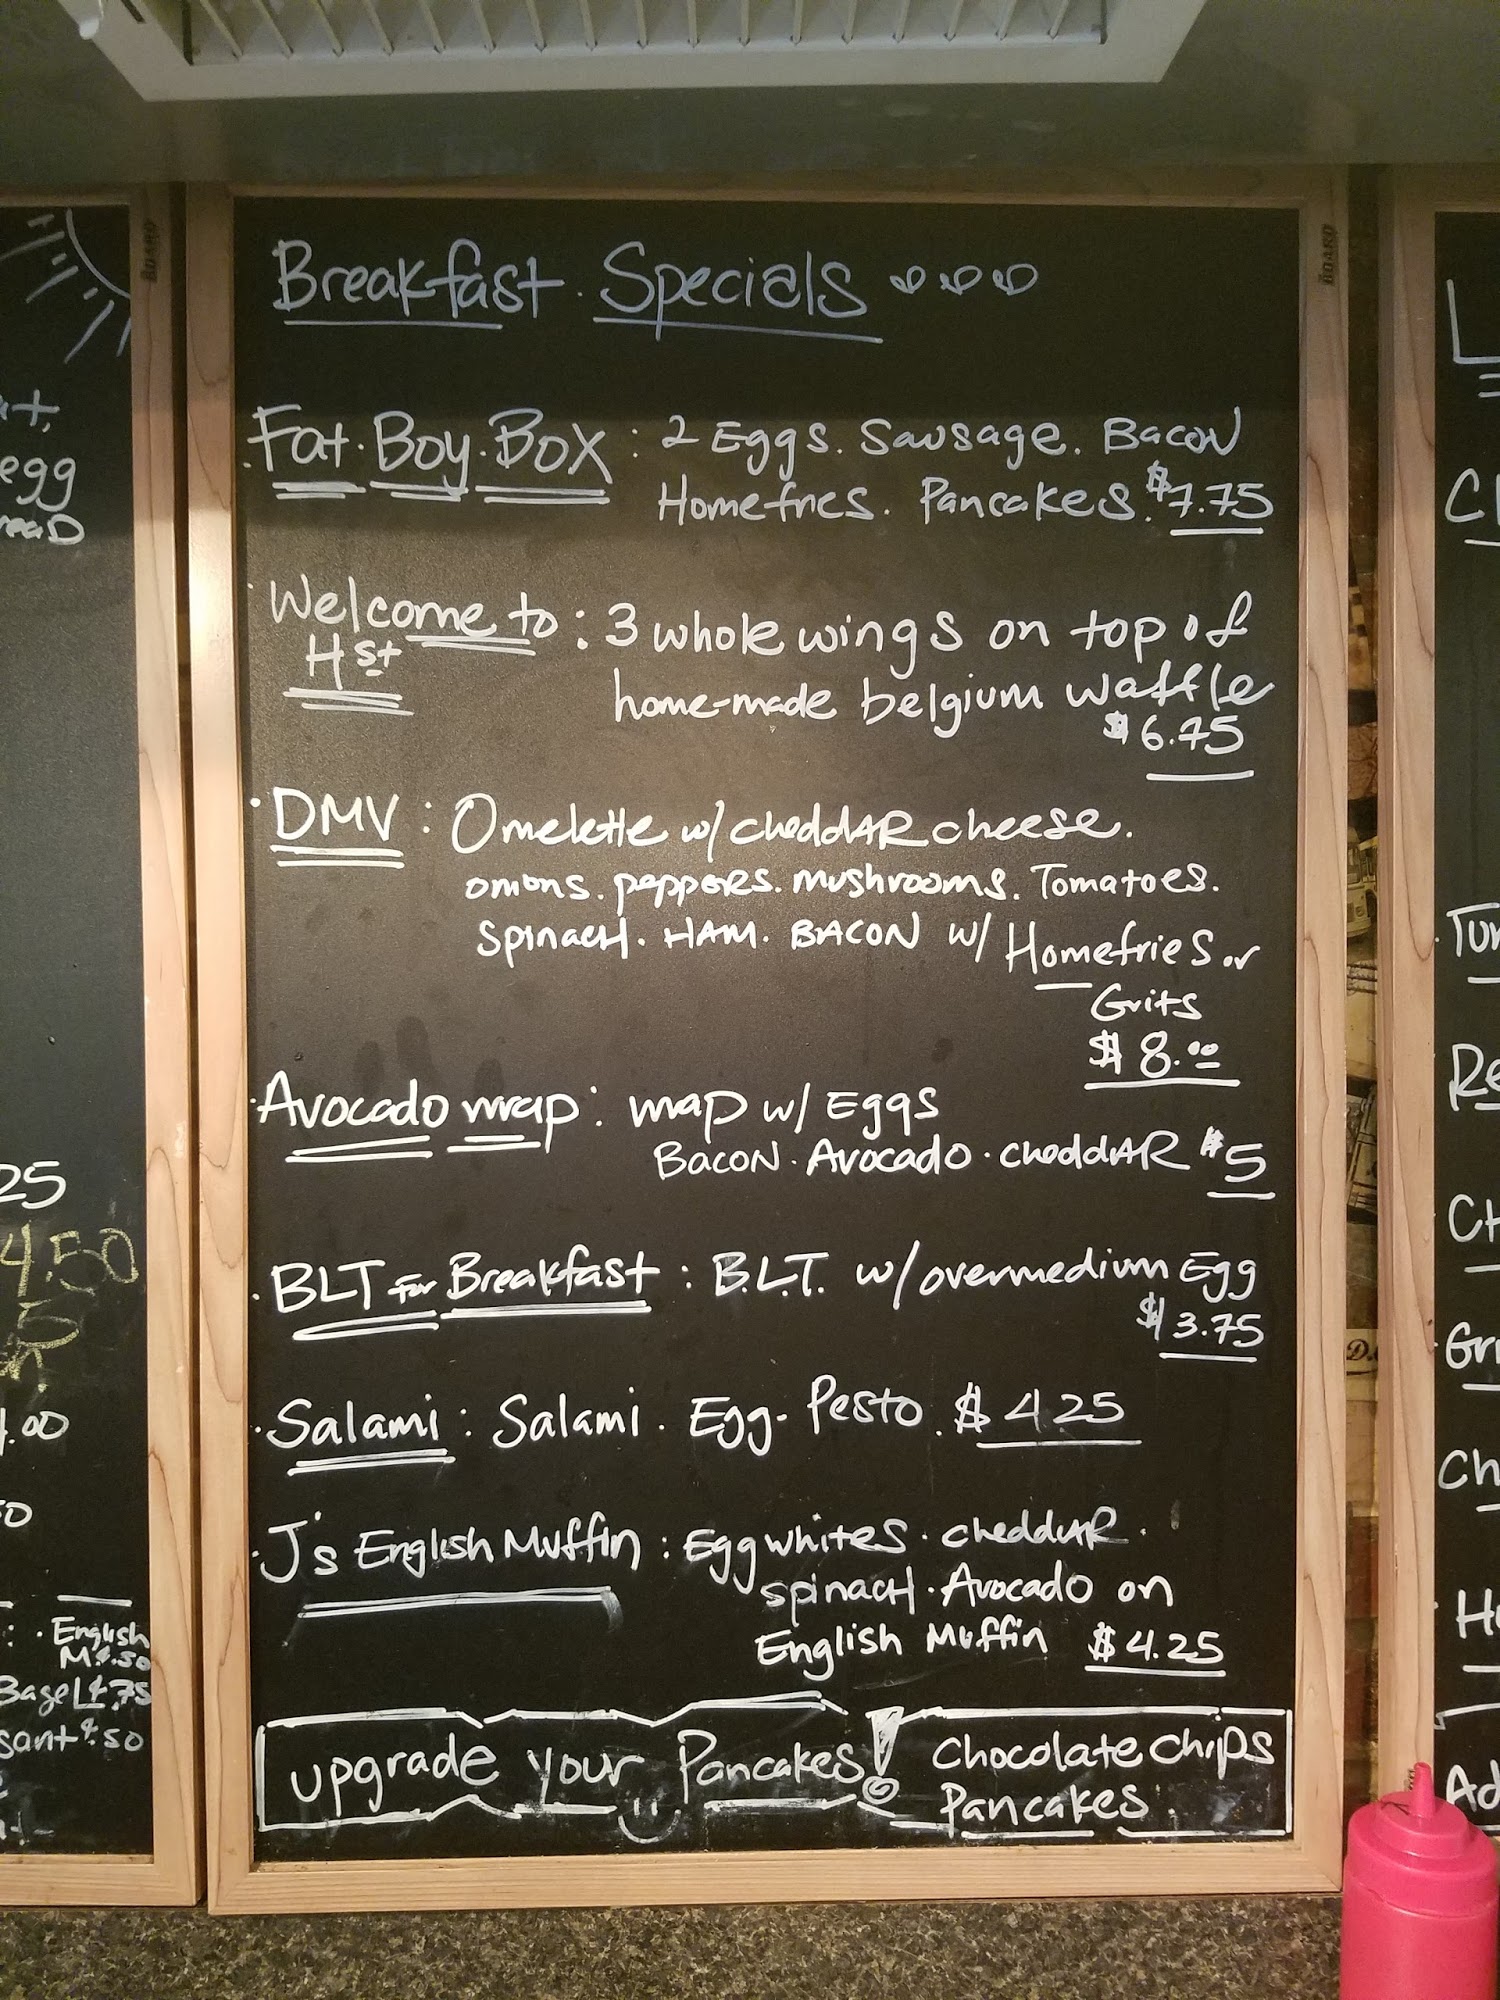 Breakfast Specials
Fat Boy Box : 2 Eggs. Sausage. Bacon
Homefries. Pancakes. $7.75
Welcome to : 3 whole wings on top of
H st
home-made belgium waffle
$6.75
DMV : Omelette w/ cheddAR cheese.
onions. peppers. mushrooms. Tomatoes.
spinach. HAM. BACON w/ Homefries or
Grits
$8.00
Avocado wrap : wrap w/ Eggs
Bacon. Avocado. cheddAR $5
BLT for Breakfast : B.L.T. w/ overmedium Egg
$3.75
Salami : Salami. Egg. Pesto. $4.25
J's English Muffin : Egg whites. cheddAR.
spinach. Avocado on
English Muffin $4.25
upgrade your Pancakes! chocolate chips
Pancakes.
egg
25
4.50
English
M 4.50
Bagel 4.75
4.50
BOARD
BOARD